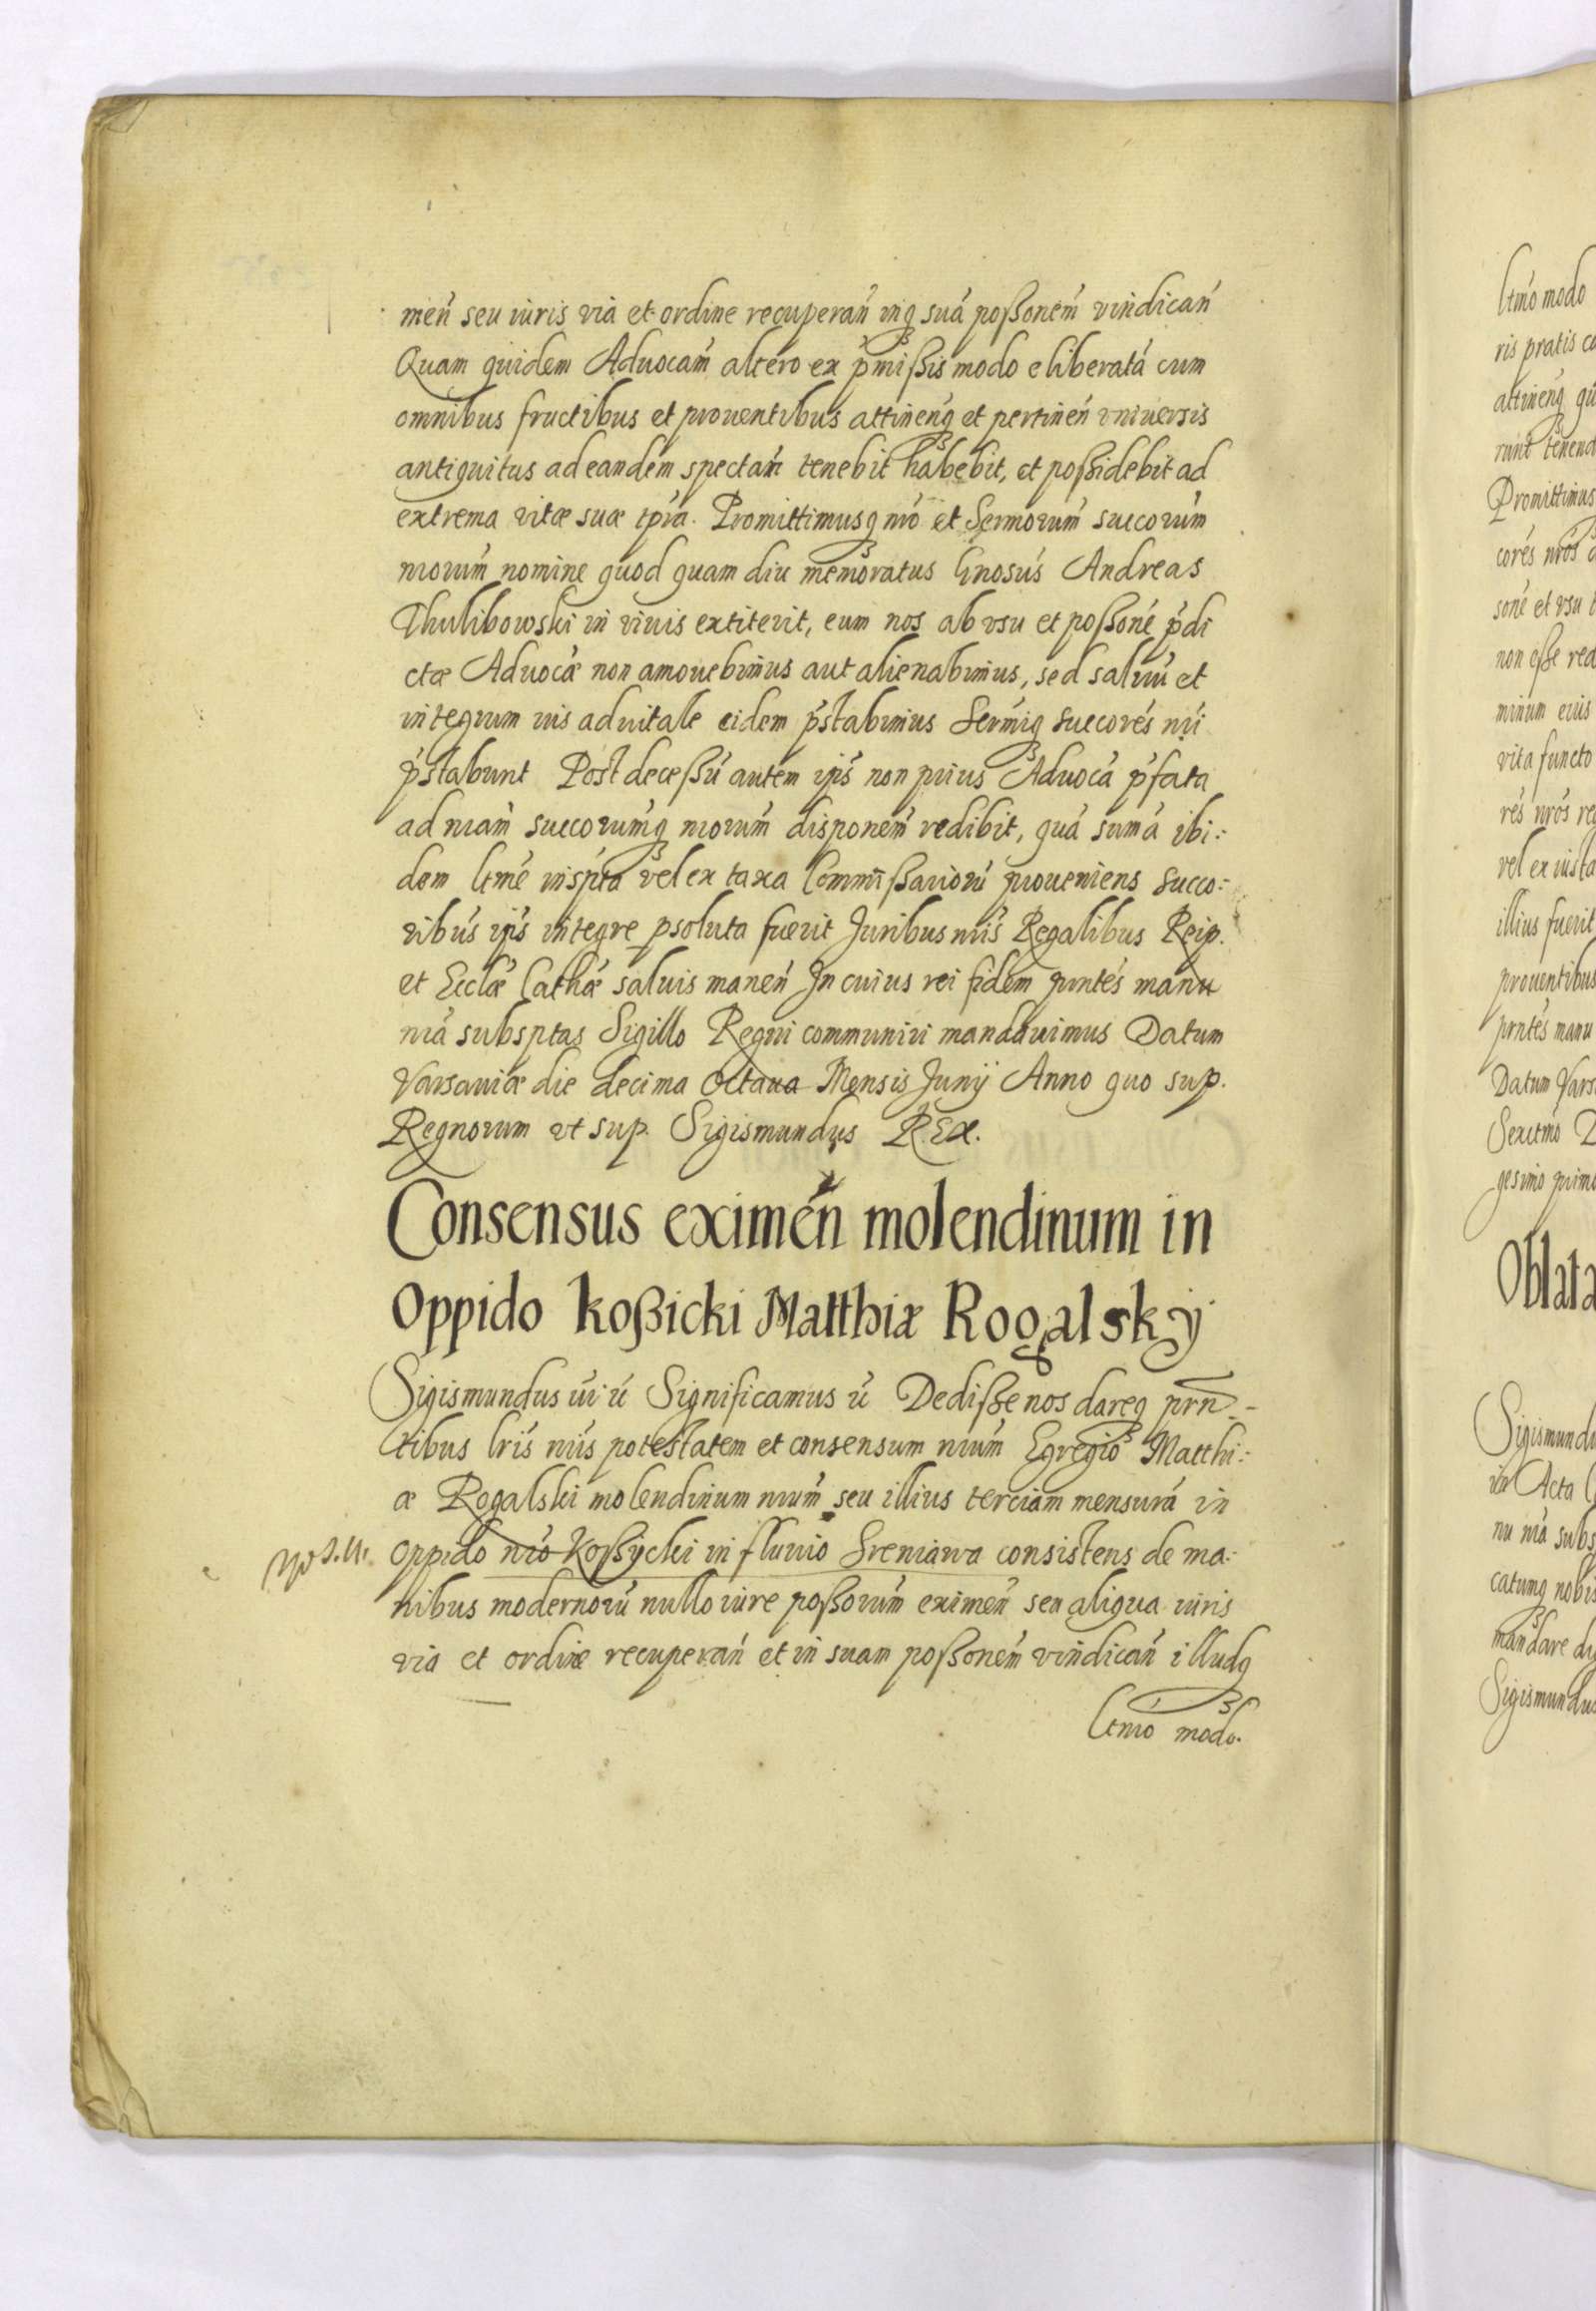 men̄ seu iuris via et ordine recuperan̄ inq₃ suā poßonem̄ vindican̄
Quam quidem Aduocam̄ altero ex p̄mißis modo eliberatā cum
omnibus fructibus et prouentibus attinenq₃ et pertinen̄ vniuersis
antiquitus ad eandem spectan̄ tenebit habebit, et poßidebit ad
extrema vitæ suæ tp̄ra. Promittimusq₃ nr̄o et Sermorum̄ succorum̄
nrorum̄ nomine quod quam diu memoratus Gnosus̄ Andreas
Chulibowski in viuis extiterit, eum nos ab vsu et poßonē p̄di
ctæ Aduocǣ non amouebimus aut alienabimus, sed saluū et
integrum ius aduitale eidem p̄stabimus Sermiq₃ succores̄ nr̄i
p̄stabunt Post deceßū autem ip̄s non prius Aduocā p̄fata
ad nram̄ succorumq₃ nrorum̄ disponem̄ redibit, quā sumā ibi:
dem ltmē inspta vel ex taxa Commißariorū proueniens succo:
ribus̄ ip̄s integre psoluta fuerit Juribus nr̄is Regalibus Reip.
et Ecclǣ Cathǣ saluis manen̄ In cuius rei fidem prntes̄ manu
nr̄a subsptas Sigillo Regni communiri mandauimus Datum
Varsauiæ die decima octaua Mensis Junij Anno quo sup.
Regnorum vt sup. Sigismundus REX.
Consensus eximen̄ molendinum in
oppido koßicki Matthiæ Rogalsky
Sigismundus ūi ū Significamus ū Dediße nos dareq₃ prn̄-
tibus lris̄ nr̄is potestatem et consensum nrum̄ Egregio Matthi:
æ Rogalski molendinum nrum̄ seu illius terciam mensurā in
oppido nr̄o Koßycki in fluuio Sreniawa consistens de ma:
nibus modernorū nullo iure poßorum̄ eximen̄ seu aliqua iuris
via et ordine recuperan̄ et in suam poßonem̄ vindican̄ illudq₃
ltmo modo.
ltmo modo
ris pratis
Promittimus
cores̄ nros̄
sonē et vsu
non eße
minum eius
vita functo
res̄ nros̄
illius fuerit
prouentibus
prntes̄ manu
Datum
gesimo
Oblata
in Acta
catumq₃ nobis
mandare